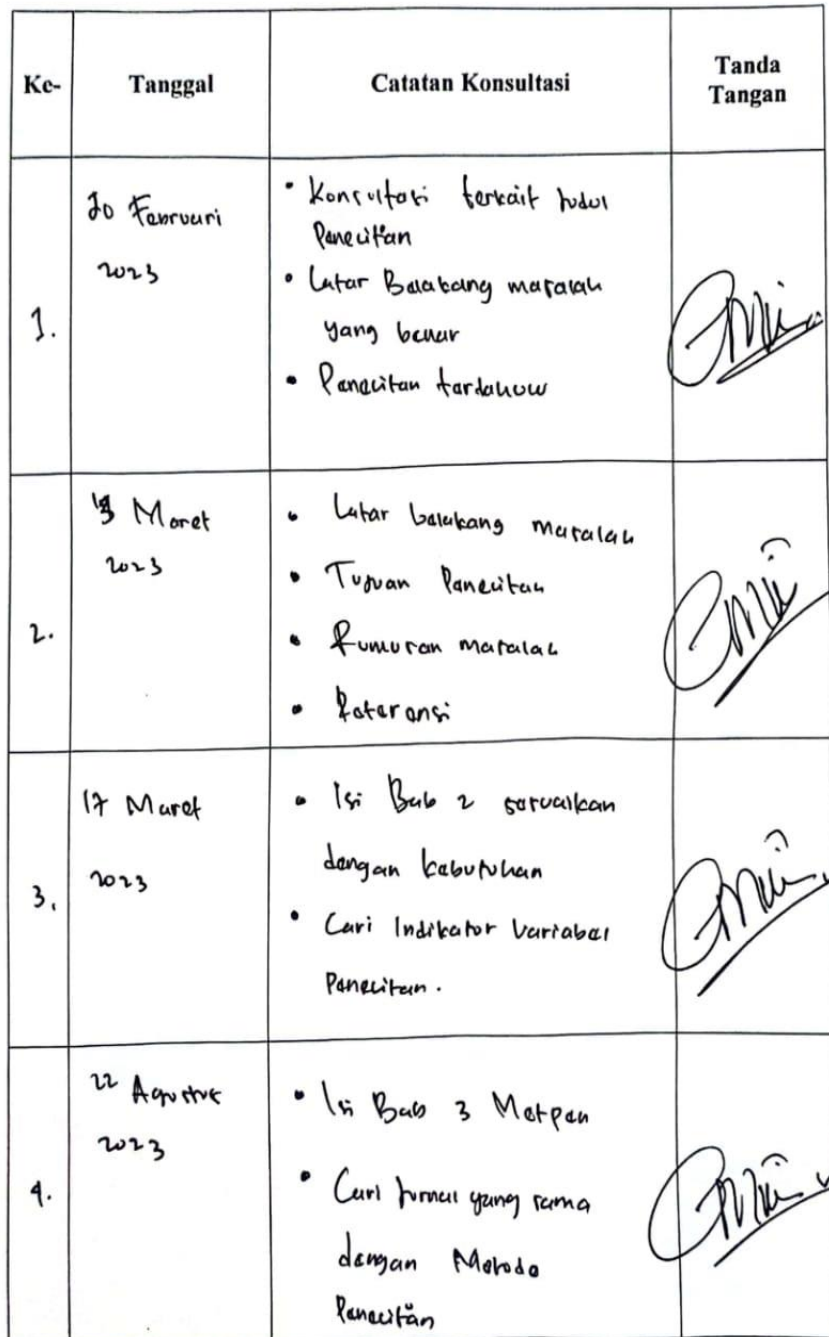 Ke-
Tanggal
Catatan Konsultasi
Tanda
Tangan
1.
20 Februari
2023
• Konsultasi terkait Judul
Penelitian
• Latar Belakang masalah
yang benar
• Penelitian terdahulu
2.
Maret
2023
• Latar belakang masalah
• Tujuan Penelitian
• Rumusan masalah
• Referensi
3.
17 Maret
2023
• Isi Bab 2 sesuaikan
dengan kebutuhan
• Cari Indikator Variabel
Penelitian.
4.
22 Agustus
2023
• Isi Bab 3 Metpen
• Cari Jurnal yang sama
dengan Metode
Penelitian